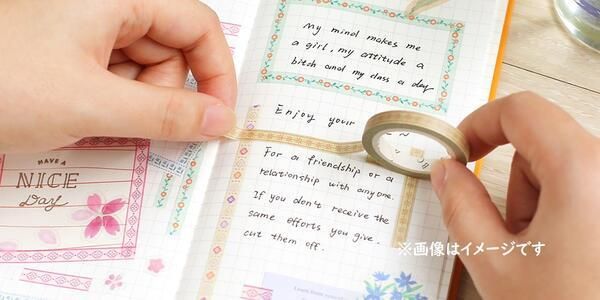 My mind makes me
a girl, my attitude a
bitch and my class a day
Enjoy your
For a friendship or a
relationship with anyone.
If you don't receive the
same efforts you give.
cut them off.
HAVE A
NICE
Day
※画像はイメージです